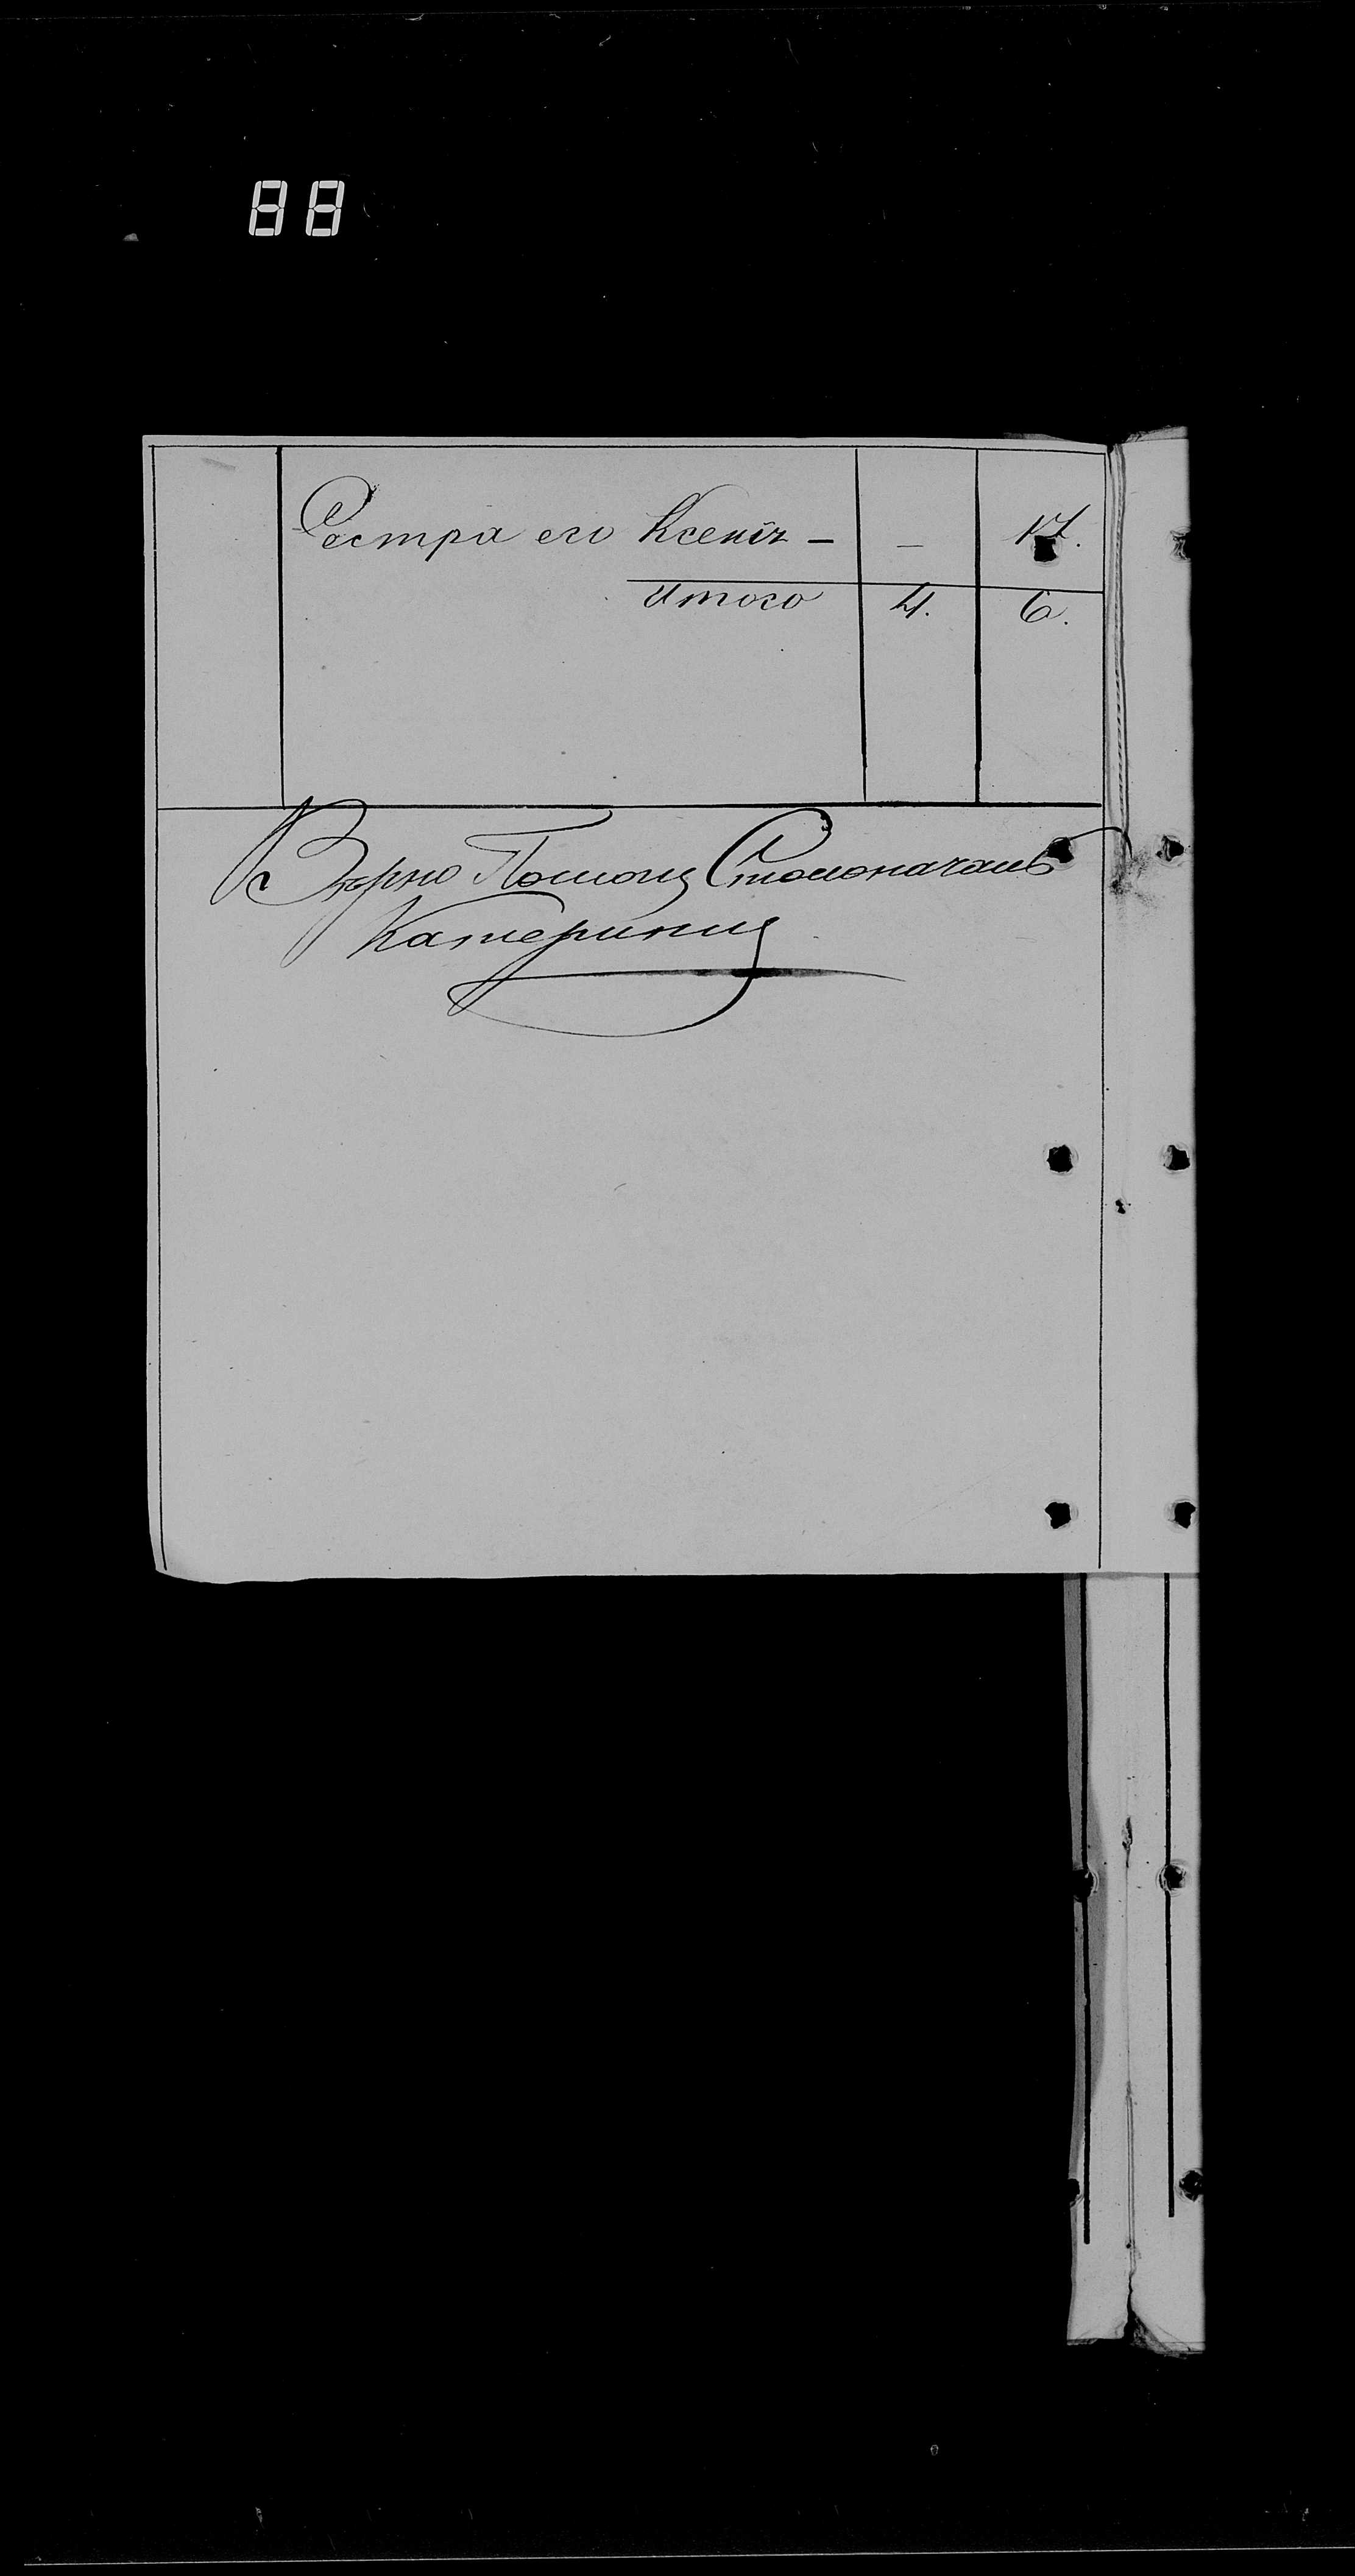 88
Сестра его Ксенія – – 17.
Итого 4. 6.
Вѣрно Помощ Столоначаль
Катеринич